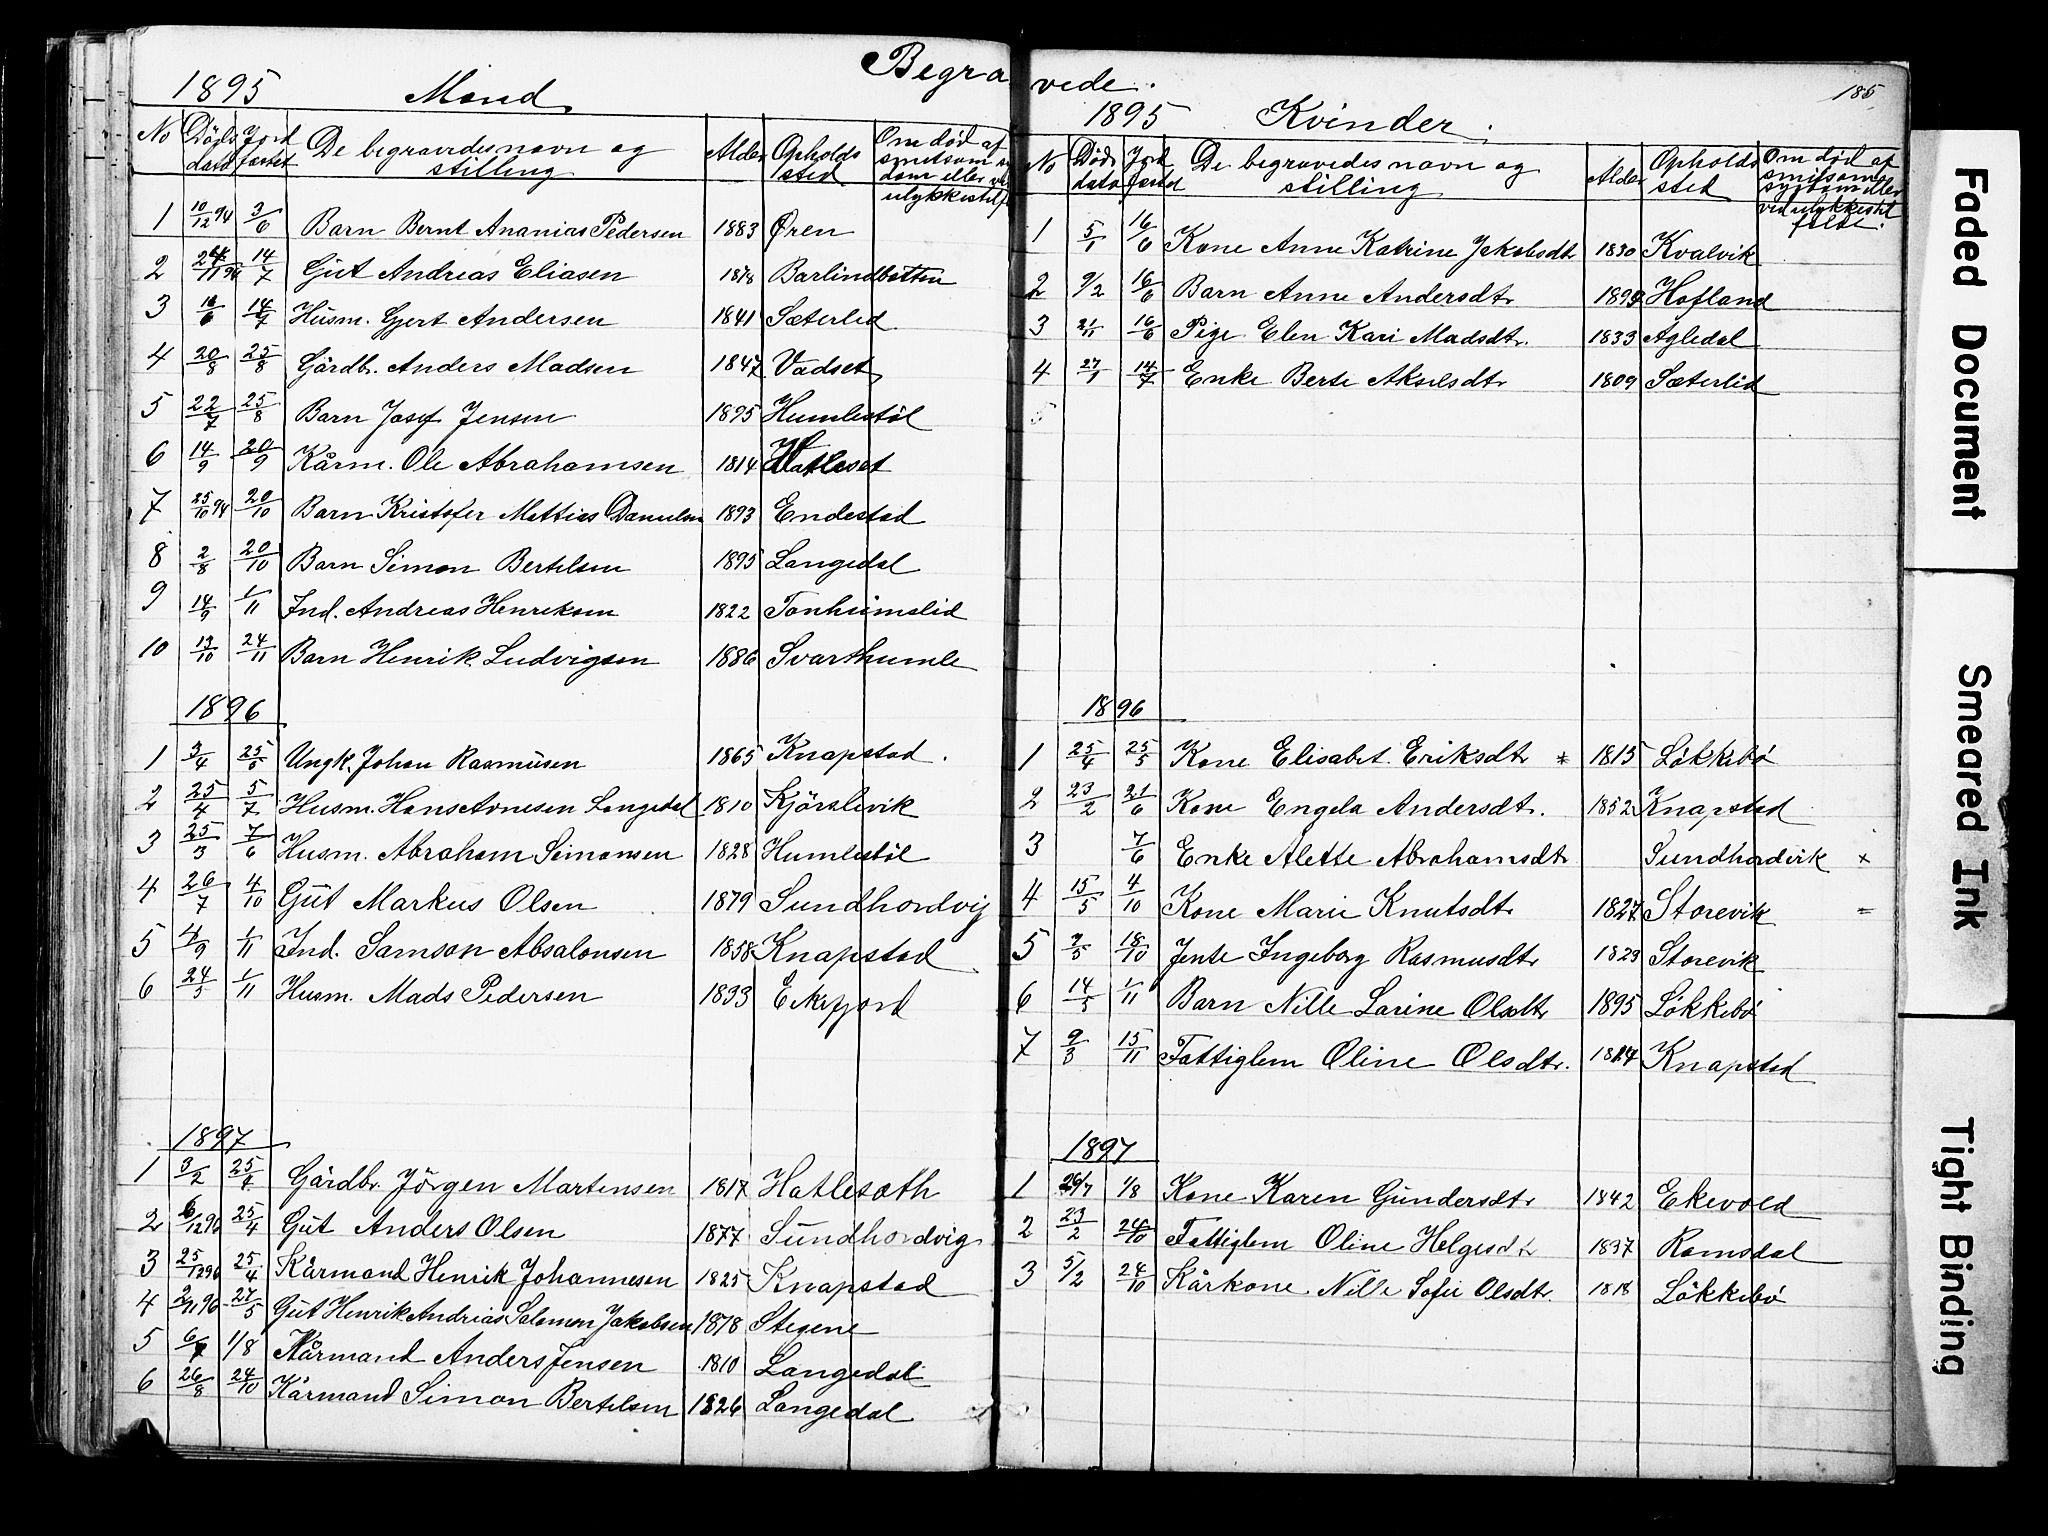 Begravede.
1895 Mænd
No Döds dato Jord fæstet De begravedes navn og stilling Alder Opholds sted Om død af smitsom syg dom eller ved ulykkestilf
1 10/12 94 3/6 Barn Bernt Ananias Pedersen 1883 Øren
2 24/11 94 14/7 Gut Andreas Eliasen 1878 Barlindbotten
3 16/6 14/7 Husm. Gjert Andersen 1841 Sæterlid
4 20/8 25/8 Gårdbr. Anders Madsen 1847 Vadset
5 22/7 25/8 Barn Josef Jensen 1895 Humlestöl
6 14/9 20/9 Kårm. Ole Abrahamsen 1814 Hatleset
7 25/10 94 20/10 Barn Kristofer Mattias Danielsen 1893 Endestad
8 2/8 20/10 Barn Simon Bertelsen 1895 Langedal
9 14/9 1/11 Ind. Andreas Henriksen 1822 Tonheimslid
10 13/10 24/11 Barn Henrik Ludvigsen 1886 Svarthumle
1896
1 3/4 25/5 Ungk. Johan Rasmüsen 1865 Knapstad.
2 25/4 5/7 Husm. Hans Arnesen Langedal 1810 Kjörslevik
3 25/3 7/6 Husm. Abraham Simonsen 1828 Humlestöl
4 26/7 4/10 Güt Markus Olsen 1879 Sundhordvig
5 4/9 1/11 Ind. Samson Absalonsen 1858 Knapstad
6 24/5 1/11 Husm. Mads Pedersen 1833 Eikefjord
1897
1 3/2 25/4 Gårdbr. Jörgen Martensen 1817 Hatlesæth
2 6/12 96 25/4 Güt Anders Olsen 1877 Sündhordvig
3 25/12 96 25/4 Kårmand Henrik Johannesen 1825 Knapstad
4 2/11 96 27/5 Güt Henrik Andreas Salomon Jakobsen 1878 Stegene
5 6/7 1/8 Kårmand Anders Jensen 1810 Langedal
6 26/8 24/10 Kårmand Simon Bertelsen 1826 Langedal
185
1895 Kvinder.
No Döds dato Jord fæstet De begravedes navn og stilling Alder Opholds sted Om død af smitsom sygdom eller ved ulykkestil fælde.
1 5/1 16/6 Kone Anne Katrine Jakobsdtr 1830 Kvalvik
2 9/2 16/6 Barn Anne Andersdtr Hofland
3 21/11 16/6 Pige Elen Kari Madsdtr. 1833 Agledal
4 27/1 14/7 Enke Berte Akselsdtr 1809 Sæterlid
5
1896
1 25/4 25/5 Kone Elisabet Eriksdtr * 1815 Løkkebø
2 23/2 21/6 Kone Engela Andersdtr. 1852 Knapstad
3 7/6 Enke Alette Abrahamsdtr Sundhordvik x
4 15/5 4/10 Kone Marie Knutsdtr 1827 Storevik =
5 7/5 18/10 Jente Ingeborg Rasmusdtr 1823 Storevik
6 14/5 1/11 Barn Nille Larine Olsdtr 1895 Løkkebø
7 9/3 15/11 Fattiglem Oline Olsdtr. 1824 Knapstad
1897
1 26/7 1/8 Kone Karen Gündersdtr 1842 Ekevold
2 23/2 24/10 Fattiglem Oline Helgesdtr 1837 Ramsdal
3 5/2 24/10 Kårkone Nille Sofie Olsdtr. 1818 Løkkebø
Faded Document
Smeared Ink
Tight Binding